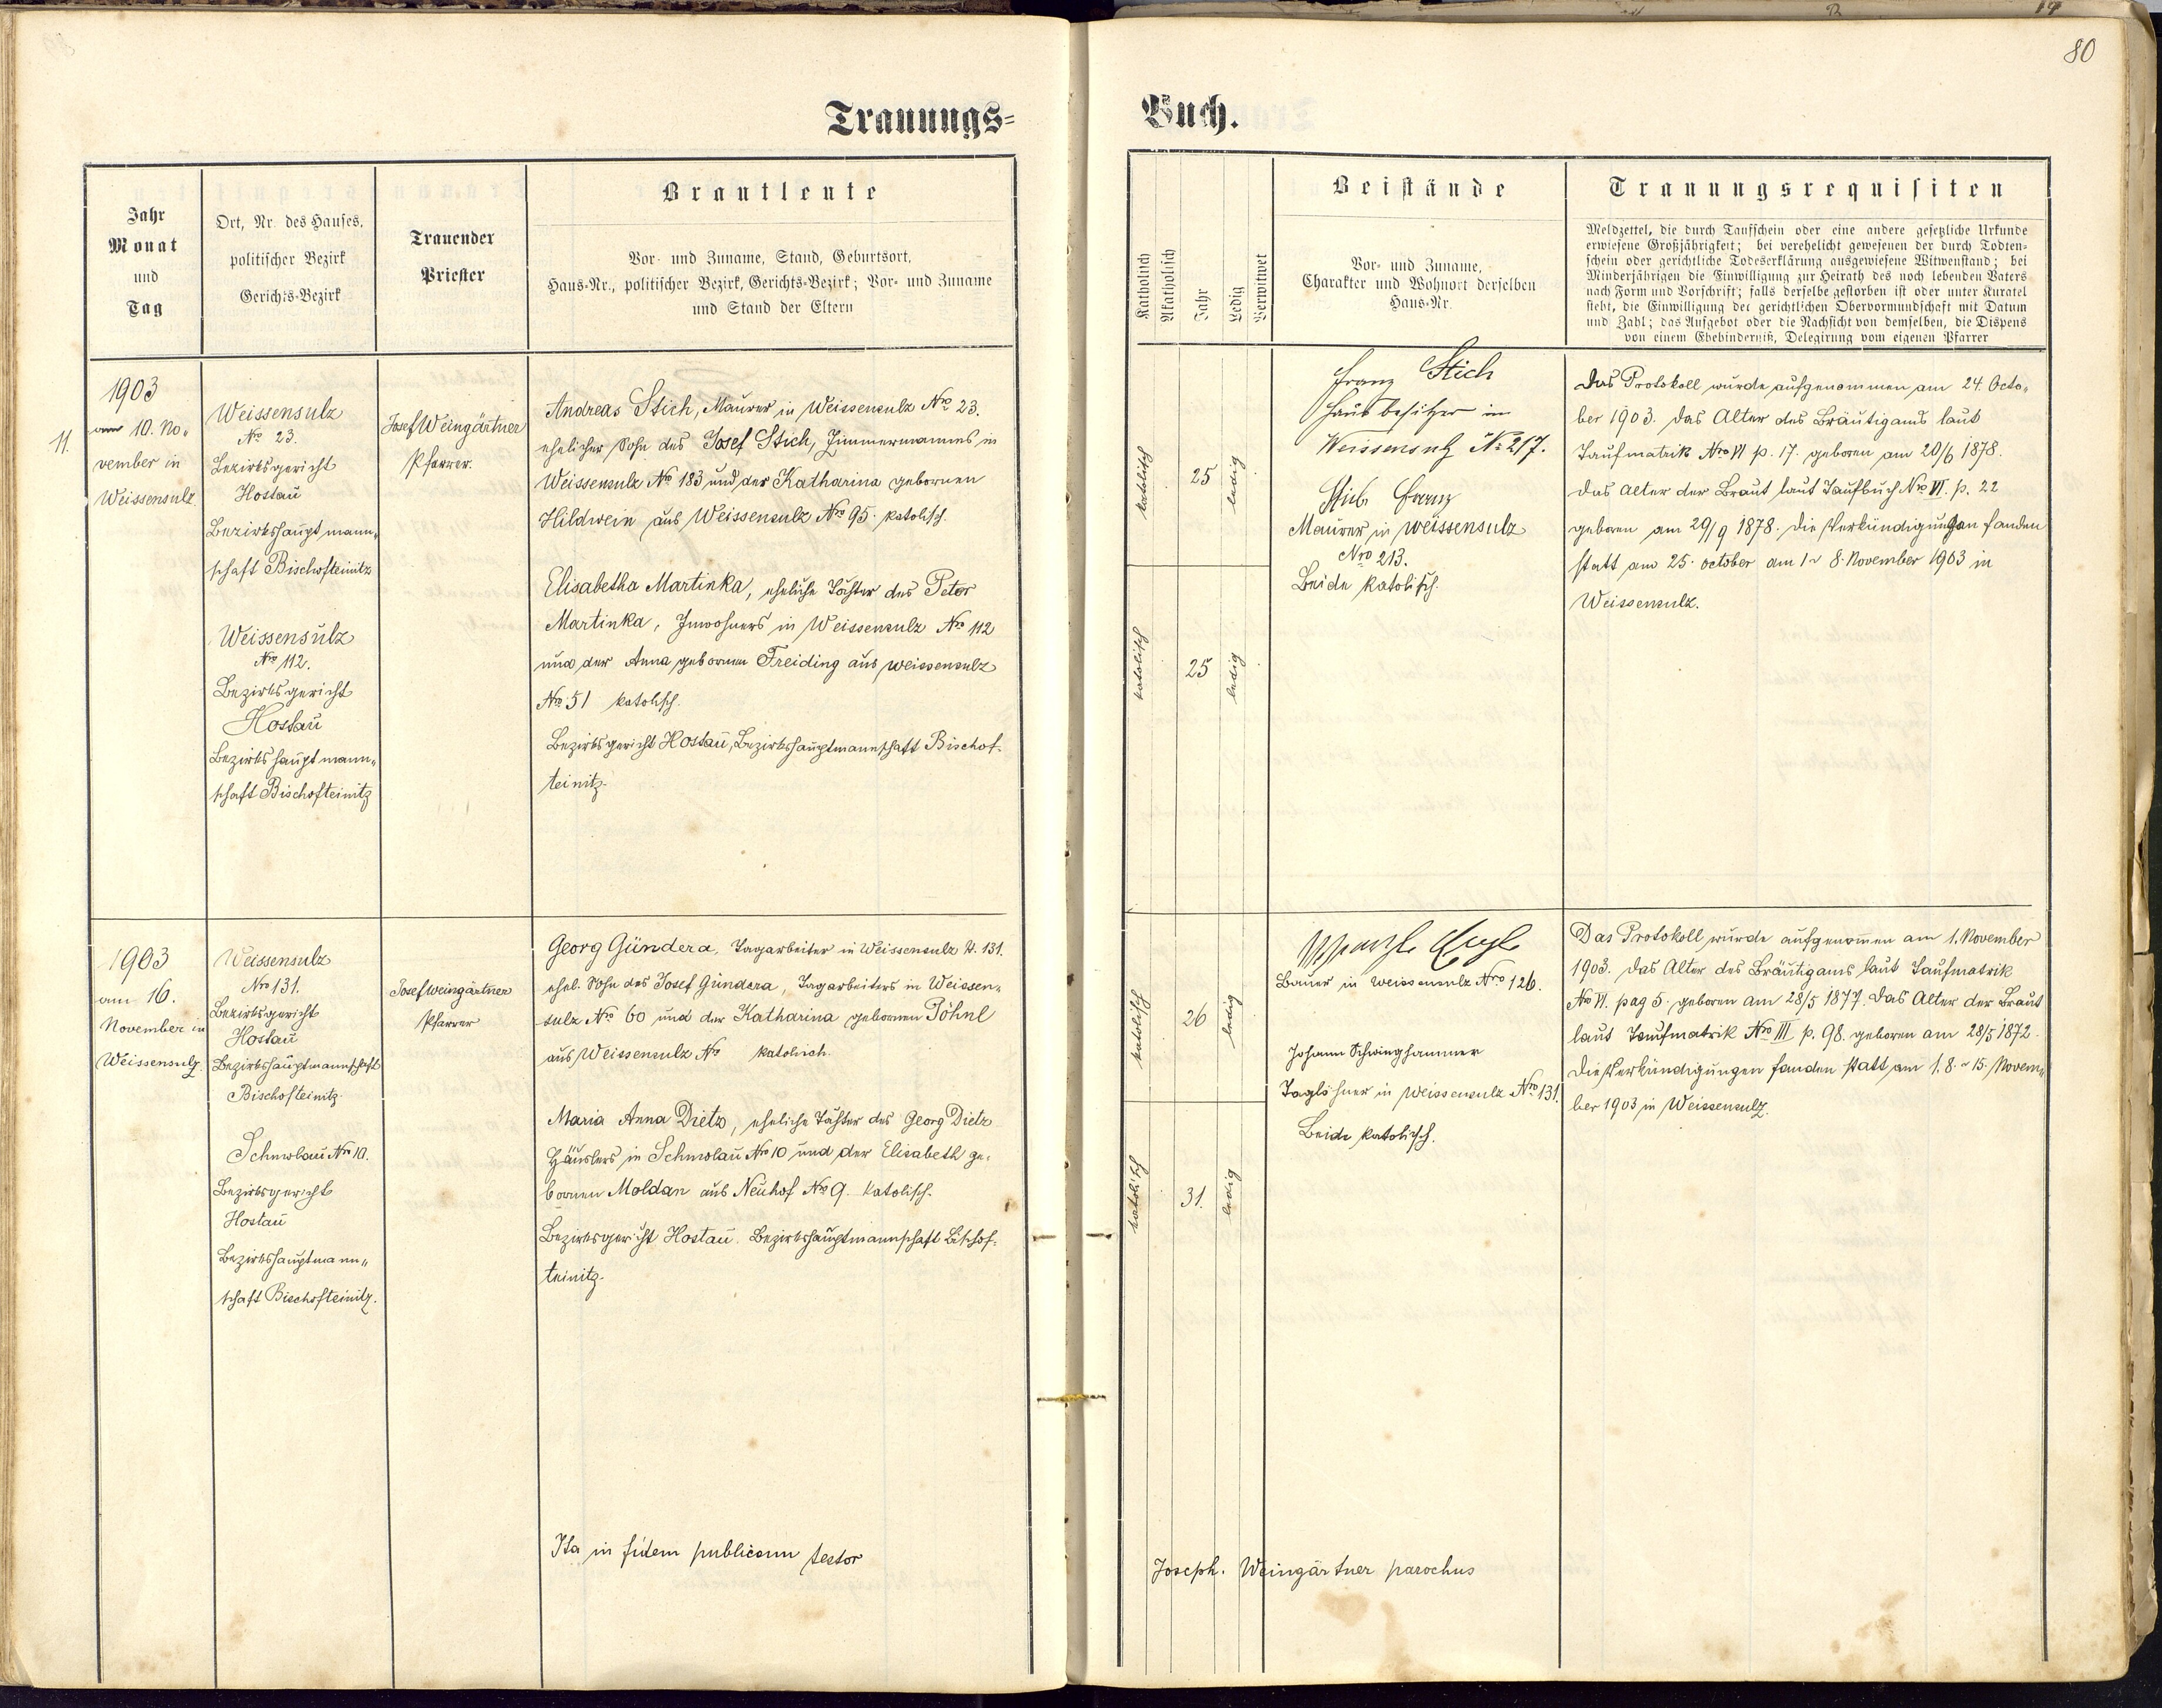 80
Trauungs=
Buch.
Jahr
Monat
und
Tag
Ort, Nr. des Hauses,
politischer Bezirk
Gerichts-Bezirk
Trauender
Priester
Brautleute
Vor- und Zuname, Stand, Geburtsort,
Haus-Nr., politischer Bezirk, Gerichts-Bezirk; Vor- und Zuname
und Stand der Eltern
Katholisch
Akatholisch
Jahr
Ledig
Verwitwet
Beistände
Vor- und Zuname,
Charakter und Wohnort derselben
Haus-Nr.
Trauungsrequisiten
Meldzettel, die durch Taufschein oder eine andere gesetzliche Urkunde
erwiesene Großjährigkeit; bei verehelicht gewesenen der durch Todten-
schein oder gerichtliche Todeserklärung ausgewiesene Witwenstand; bei
Minderjährigen die Einwilligung zur Heirath des noch lebenden Vaters
nach Form und Vorschrift; falls derselbe gestorben ist oder unter Kuratel
steht, die Einwilligung der gerichtlichen Obervormundschaft mit Datum
und Zahl; das Aufgebot oder die Nachsicht von demselben, die Dispens
von einem Ehehinderniß, Delegirung vom eigenen Pfarrer
11.
1903
am 10. No„
vember in
Weissensulz
Weissensulz
Nro 23.
Bezirksgericht
Hostau
Bezirkshauptmann„
schaft Bischofteinitz
Weissensulz
Nro 112.
Bezirksgericht
Hostau
Bezirkshauptmann„
schaft Bischofteinitz
Josef Weingärtner
Pfarrer.
Andreas Stich, Maurer in Weissensulz Nro 23.
ehelicher Sohn des Josef Stich, Zimmermannes in
Weissensulz Nro 183 und der Katharina gebornen
Hildwein aus Weissensulz Nro 95. katolisch.
Elisabetha Martinka, eheliche Tochter des Peter
Martinka, Inwohners in Weissensulz Nro 112
und der Anna gebornen Freiding aus Weissensulz
Nro 51 katolisch.
Bezirksgericht Hostau, Bezirkshauptmannschaft Bischof-
teinitz.
katolisch
25
ledig
katolisch
25
ledig
Franz Stich
Hausbesitzer in
Weissensulz No 217.
Stich Franz
Maurer in Weissensulz
Nro 213.
Beide katolisch.
Das Protokoll wurde aufgenommen am 24. Octo„
ber 1903. Das Alter des Bräutigams laut
Taufmatrik Nro VI p. 17. geboren am 20/6 1878.
Das Alter der Braut laut Taufbuch Nro VI. p. 22
geboren am 29/9 1878. Die Verkündigungen fanden
statt am 25. October am 1 8. November 1903 in
Weissensulz.
1903
am 16.
November in
Weissensulz.
Weissensulz
Nro 131.
Bezirksgericht
Hostau
Bezirkshauptmannschaft
Bischofteinitz.
Schmolau Nro 10.
Bezirksgericht
Hostau
Bezirkshauptmann„
schaft Bischofteinitz.
Josef Weingärtner
Pfarrer
Georg Gündera, Tagarbeiter in Weissensulz N. 131.
ehel. Sohn des Josef Gündera, Tagarbeiters in Weissen„
sulz Nro 60 und der Katharina gebornen Pöhnl
aus Weissensulz Nro katolisch.
Maria Anna Dietz, eheliche Tochter des Georg Dietz
Häuslers in Schmolau Nro 10 und der Elisabeth ge„
bornen Moldan aus Neuhof Nro 9. katolisch.
Bezirksgericht Hostau. Bezirkshauptmannschaft Bischof-
teinitz.
katolisch
26
ledig
katolisch
31.
ledig
Bauer in Weissensulz Nro 126.
Johann Schwinghammer
Taglöhner in Weissensulz Nro 131.
Beide katolisch.
Das Protokoll wurde aufgenomen am 1. November
1903. Das Alter des Bräutigams laut Taufmatrik
Nro VI. pag 5. geboren am 28/5 1877. Das Alter der Braut
laut Taufmatrik Nro III p. 98. geboren am 28/5 1872.
Die Verkündigungen fanden statt am 1. 8. 15. Novem„
ber 1903 in Weissensulz.
Ita in fidem publicam testor
Joseph. Weingärtner parochus